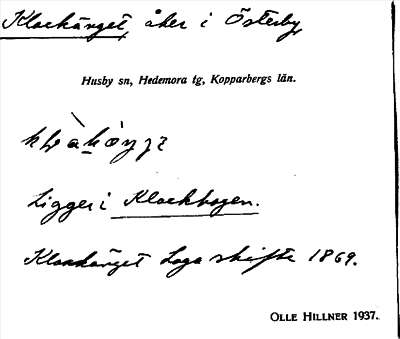 Klockänget, åker i Österby,
Husby sn, Hedemora tg, Kopparbergs län.
Ligger i Klockhagen.
Klockänget Laga skifte 1869.
OLLE HILLNER 1937.